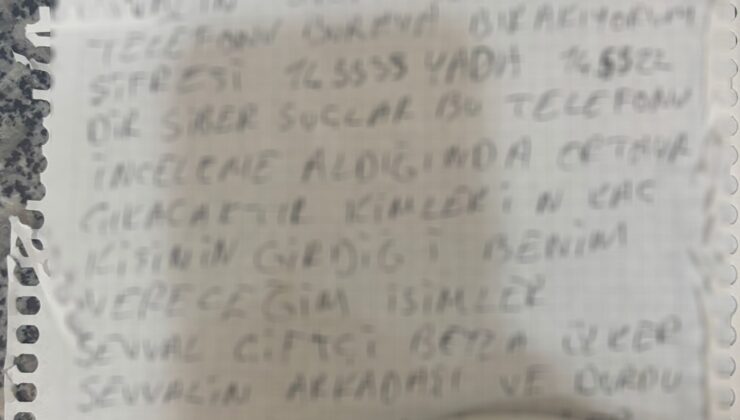 TELEFONU BURAYA BIRAKIYORUM
ŞİFRESİ 165555 YADA 165522
DİR SİBER SUÇLAR BU TELEFONU
İNCELEME ALDIĞINDA ORTAYA
ÇIKACAKTIR KİMLERİN KAÇ
KİSİNİN GİRDİĞİ BENİM
VERECEĞİM İSİMLER
ŞEVVAL ÇİFTÇİ İLKER
ŞEVVALİN ARKADAŞI VE